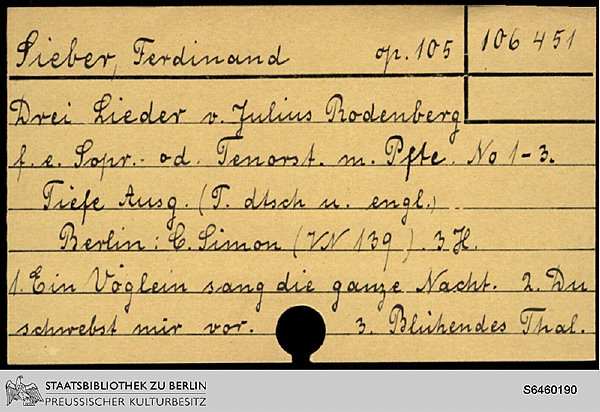 Sieber, Ferdinand op. 105 106 451
Drei Lieder v. Julius Rodenberg
f. e. Sopr.- od. Tenorst. m. Pfte. No 1-3.
Tiefe Ausg. (T. dtsch u. engl.)
Berlin: C. Simon (VN 139). 3 H.
1. Ein Vöglein sang die ganze Nacht. 2. Du
schwebst mir vor. 3. Blühendes Thal.
STAATSBIBLIOTHEK ZU BERLIN
PREUSSISCHER KULTURBESITZ
S6460190